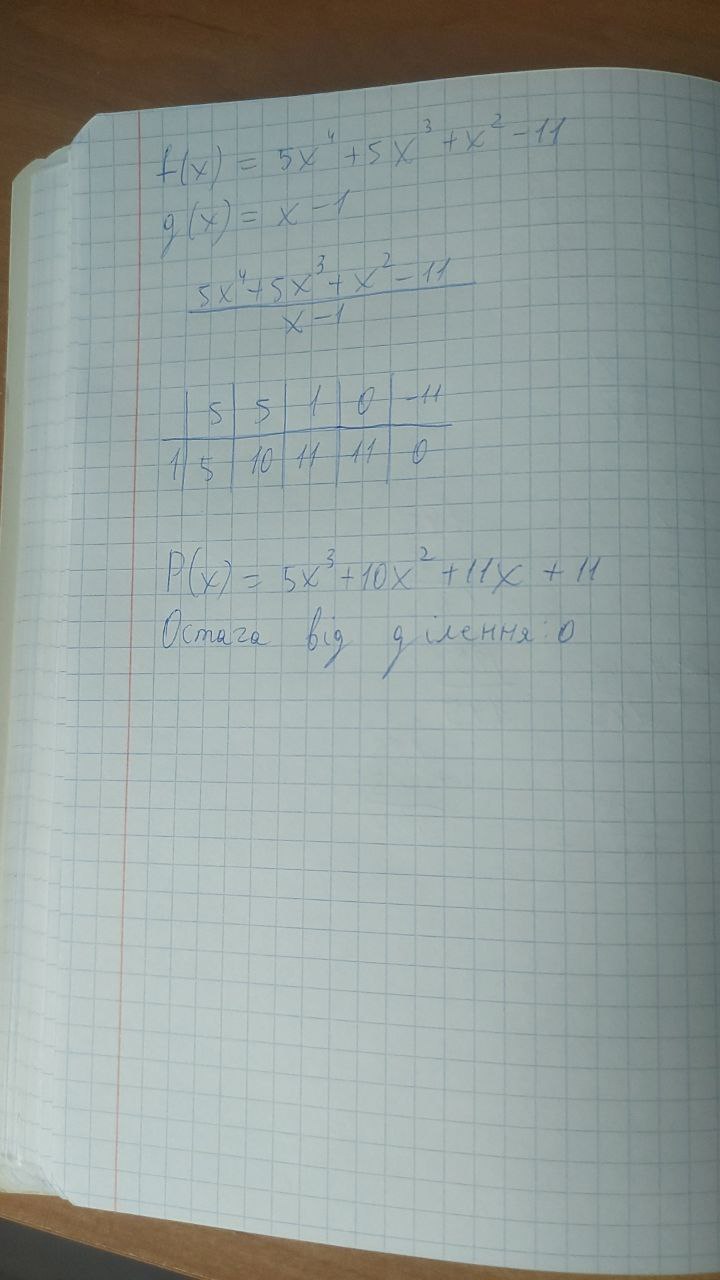 f(x) = 5x⁴ + 5x³ + x² - 11
g(x) = x - 1
5x⁴ + 5x³ + x² - 11
x - 1
5 5 1 0 -11
1 5 10 11 11 0
P(x) = 5x³ + 10x² + 11x + 11
Остача від ділення: 0